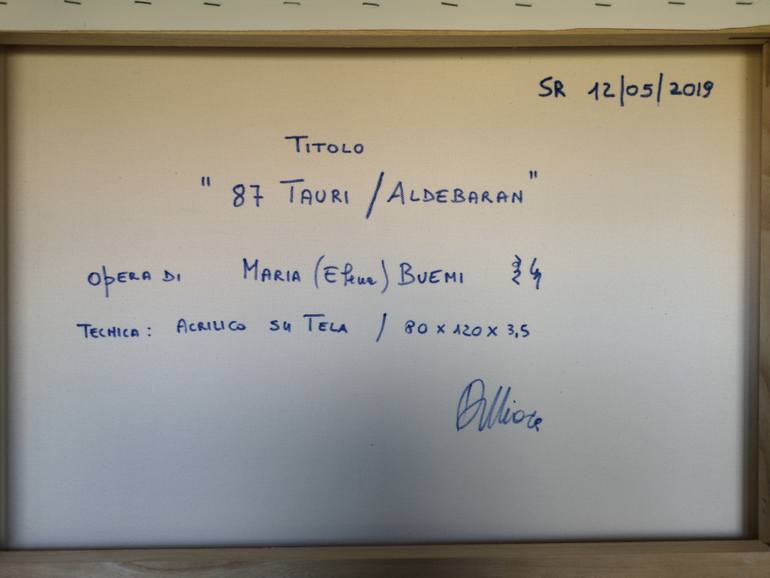 SR 12/05/2019
TITOLO
" 87 TAURI / ALDEBARAN "
OPERA DI MARIA (Elena) BUEMI
TECHICA: ACRILICO SU TELA / 80 x 120 x 3,5